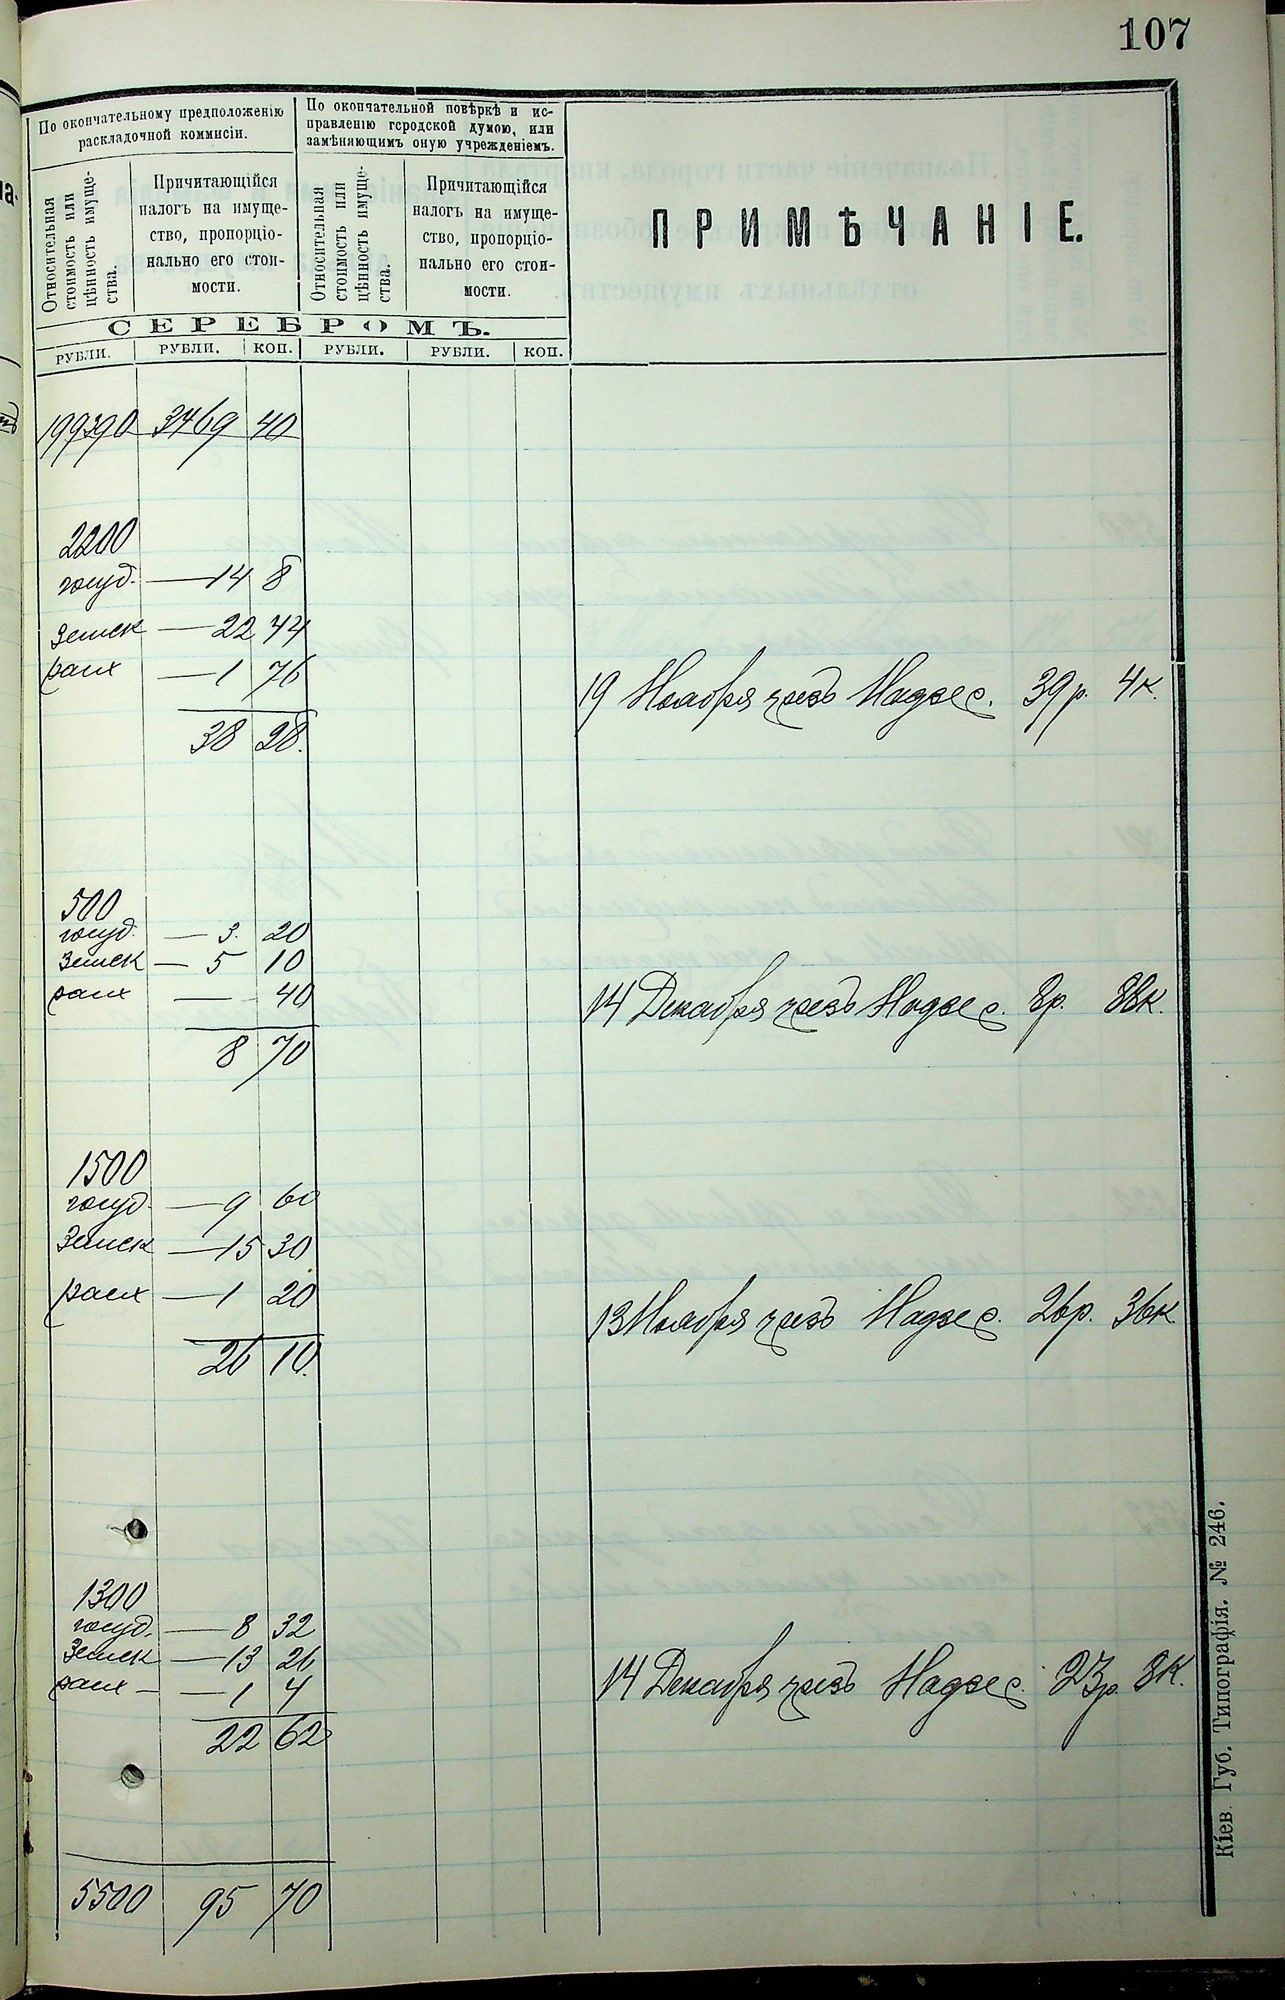 107
По окончательному предположенію
раскладочной коммисіи.
По окончательной повѣркѣ и ис-
правленію городской думою, или
замѣняющимъ оную учрежденіемъ.
Относительная
стоимость или
цѣнность имуще-
ства.
Причитающійся
налогъ на имуще-
ство, пропорціо-
нально его стои-
мости.
Относительная
стоимость или
цѣнность имуще-
ства.
Причитающійся
налогъ на имуще-
ство, пропорціо-
нально его стои-
мости.
ПРИМѢЧАНІЕ.
СЕРЕБРОМЪ.
РУБЛИ. РУБЛИ. КОП. РУБЛИ. РУБЛИ. КОП.
199390 3469 40
2200
госуд. — 14 8
Земск — 22 44
расх — 1 76
19 Ноября чрезъ Надзес. 39 р. 4 к.
38 28.
500
госуд. — 3. 20
Земск — 5 10
расх — 40
14 Декабря чрезъ Надзес. 8 р. 88 к.
8 70
1500
госуд. — 9 60
Земск — 15 30
расх — 1 20
13 Ноября чрезъ Надзес. 26 р. 36 к
26 10.
1300
госуд. — 8 32
Земск — 13 26
расх — 1 4
14 Декабря чрезъ Надзес. 23 р. 8 к.
22 62
5500 95 70
Кіев. Губ. Типографія. № 246.